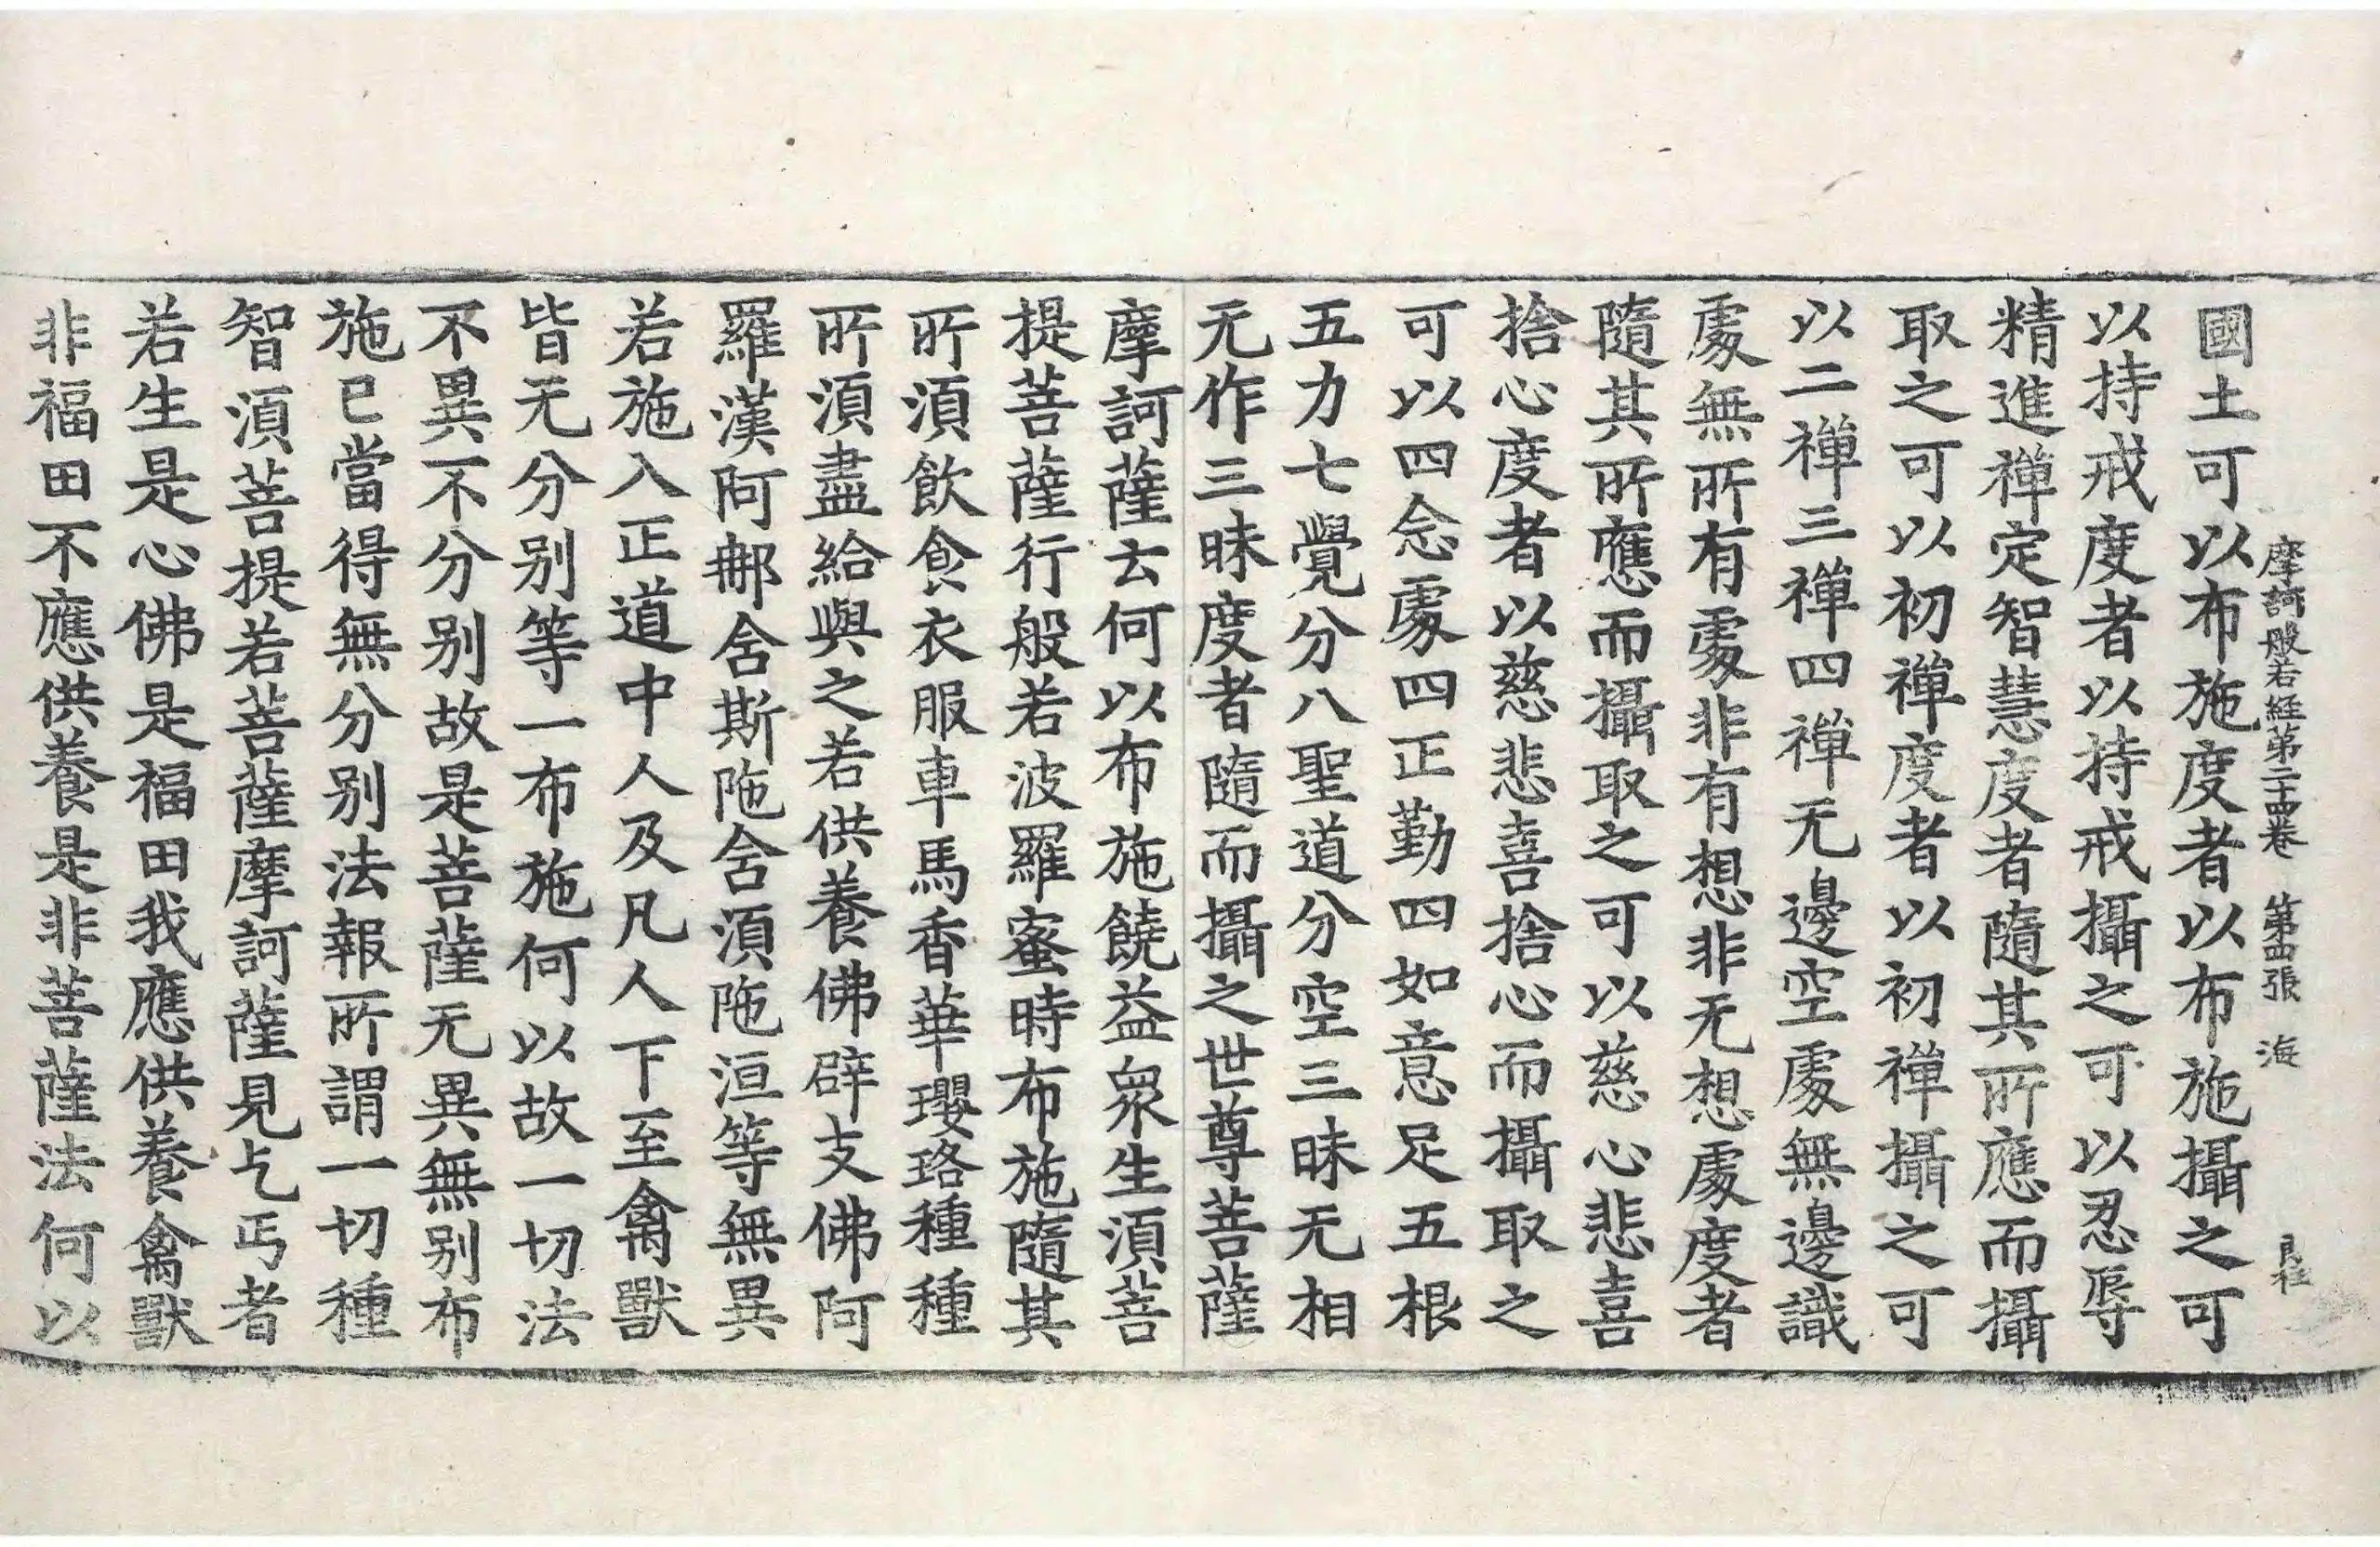 摩訶般若經第二十四卷　第四張　海　良柱
國土可以布施度者以布施攝之可
以持戒度者以持戒攝之可以忍辱
精進禪定智慧度者隨其所應而攝
取之可以初禪度者以初禪攝之可
以二禪三禪四禪无邊空處無邊識
處無所有處非有想非无想處度者
隨其所應而攝取之可以慈心悲喜
捨心度者以慈悲喜捨心而攝取之
可以四念處四正勤四如意足五根
五力七覺分八聖道分空三昧无相
无作三昧度者隨而攝之世尊菩薩
摩訶薩云何以布施饒益衆生須菩
提菩薩行般若波羅蜜時布施隨其
所須飲食衣服車馬香華瓔珞種種
所須盡給與之若供養佛辟支佛阿
羅漢阿那含斯陁含須陁洹等無異
若施入正道中人及凡人下至禽獸
皆无分别等一布施何以故一切法
不異不分别故是菩薩无異無别布
施已當得無分别法報所謂一切種
智須菩提若菩薩摩訶薩見乞丐者
若生是心佛是福田我應供養禽獸
非福田不應供養是非菩薩法何以